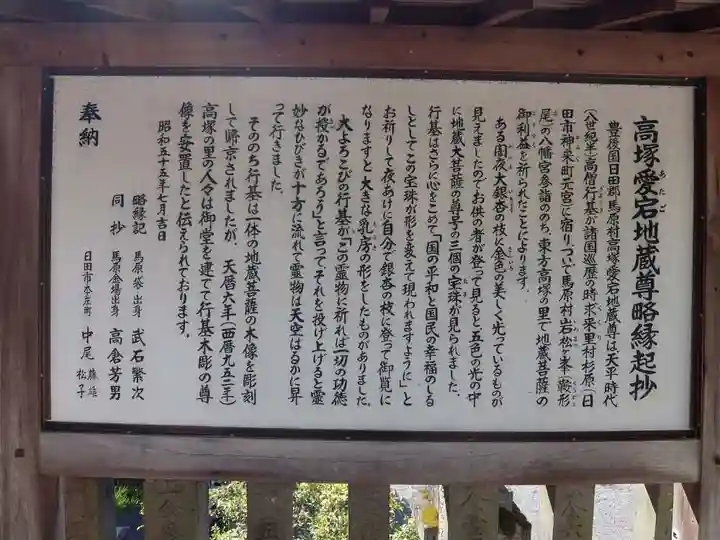 高塚愛宕地蔵尊略縁起抄
あたご
豊後国日田郡馬原村高塚愛宕地蔵尊は天平時代
(八世紀半)高僧行基が諸国巡歴の時求来里村杉原(日
田市神来町元宮)に宿りついで馬原村岩松ヶ峯(厳形
尾)の八幡宮参詣ののち、東方高塚の里で地蔵菩薩の
御利益を祈られたことによります。
ある闇夜大銀杏の枝に金色の美しく光っているものが
見えましたのでお供の者が登って見ると五色の光の中
に地蔵大菩薩の尊字の三個の宝珠が見られました。
行基はさらに心をこめて「国の平和と国民の幸福のしる
しとしてこの宝珠が形を変えて現われますように」と
お祈りして夜あけに自分で銀杏の枝に登って御覧に
なりますと大きな乳房の形をしたものがありました。
大よろこびの行基が「この霊物に祈れば一切の功徳
が授かるであろう」と言ってそれを投げ上げると霊
妙なひびきが十方に流れて霊物は天空はるかに昇
って行きました。
そののち行基は一体の地蔵菩薩の木像を彫刻
して帰京されましたが 天暦六年(西暦九五二年)
高塚の里の人々は御堂を建てて行基木彫の尊
像を安置したと伝えられております。
昭和五十五年七月吉日
略縁記 馬原 出身 武石繁次
同抄 馬原金場出身 高倉芳男
奉納
日田市本庄町 中尾 藤雄
松子